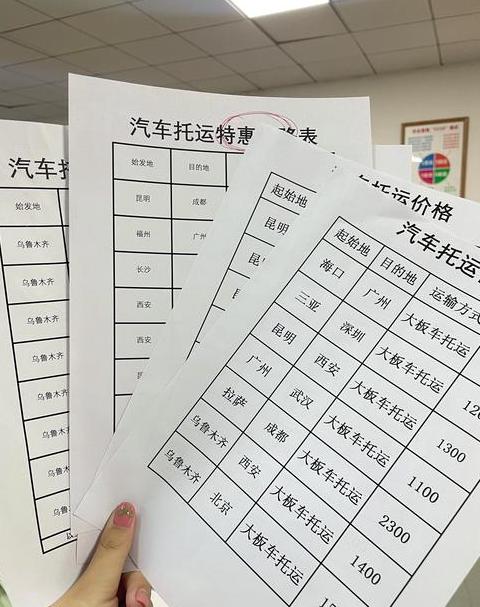 汽车托
始发地
乌鲁木齐
乌鲁木齐
乌鲁木齐
乌鲁木齐
乌鲁木齐
乌鲁木
乌鲁木
乌鲁
汽车托运特惠价格表
始发地 目的地
昆明 成都
福州 广州
长沙
西安
西安
车托运价格
起始地
昆明
昆
汽车托运
起始地 目的地 运输方式
海口 广州 大板车托运
三亚 深圳 大板车托运 1300
昆明 西安 大板车托运 1100
广州 武汉 大板车托运 2300
拉萨 成都 大板车托运 1400
乌鲁木齐 西安 大板车托运
乌鲁木齐 北京